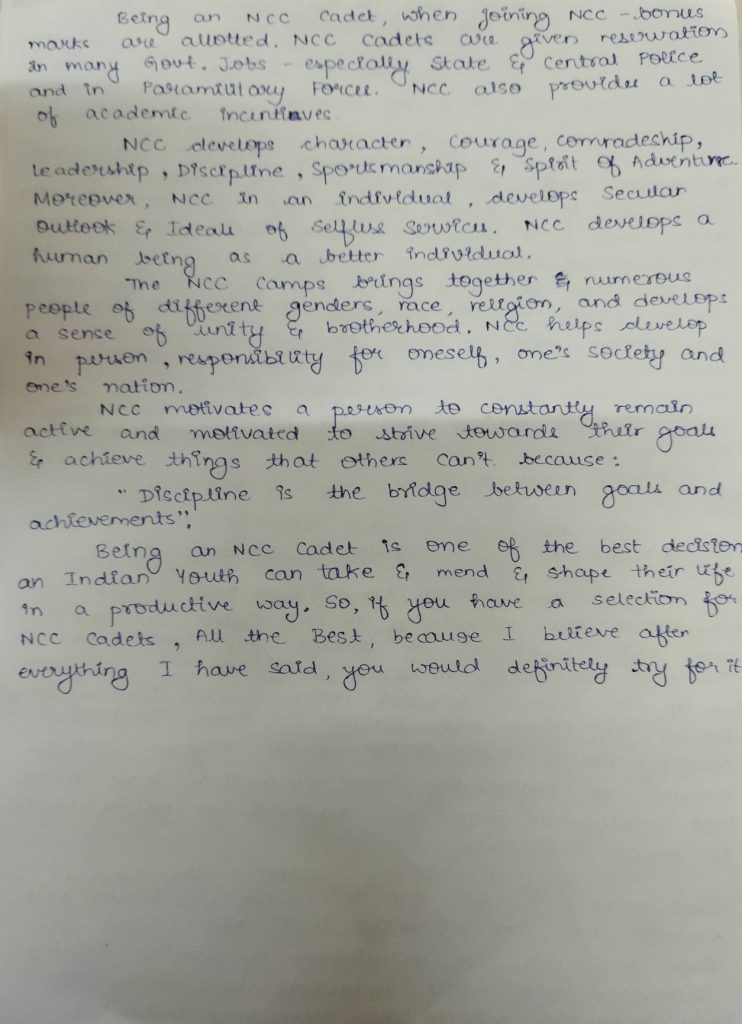 Being an NCC Cadet, when joining NCC - bonus
marks are allotted. NCC Cadets are given reservation
in many Govt. Jobs - especially State & Central Police
and in Paramilitary Forces. NCC also provides a lot
of academic incentives
NCC develops character, Courage, comradeship,
Leadership, Discipline, Sportsmanship & Spirit Of Adventure.
Moreover, NCC in an individual, develops Secular
Outlook & Ideals of Selfless Services. NCC develops a
human being as a better individual.
The NCC Camps brings together & numerous
people of different genders, race, religion, and develops
a sense of unity & brotherhood. NCC helps develop
in person, responsibility for oneself, one's society and
one's nation.
NCC motivates a person to constantly remain
active and motivated to strive towards their goals
& achieve things that others can't because:
"Discipline is the bridge between goals and
achievements",
Being an NCC Cadet is one of the best decision
an Indian Youth can take & mend & shape their life
in a productive way. So, if you have a selection for
NCC Cadets, All the Best, because I believe after
everything I have said, you would definitely try for it